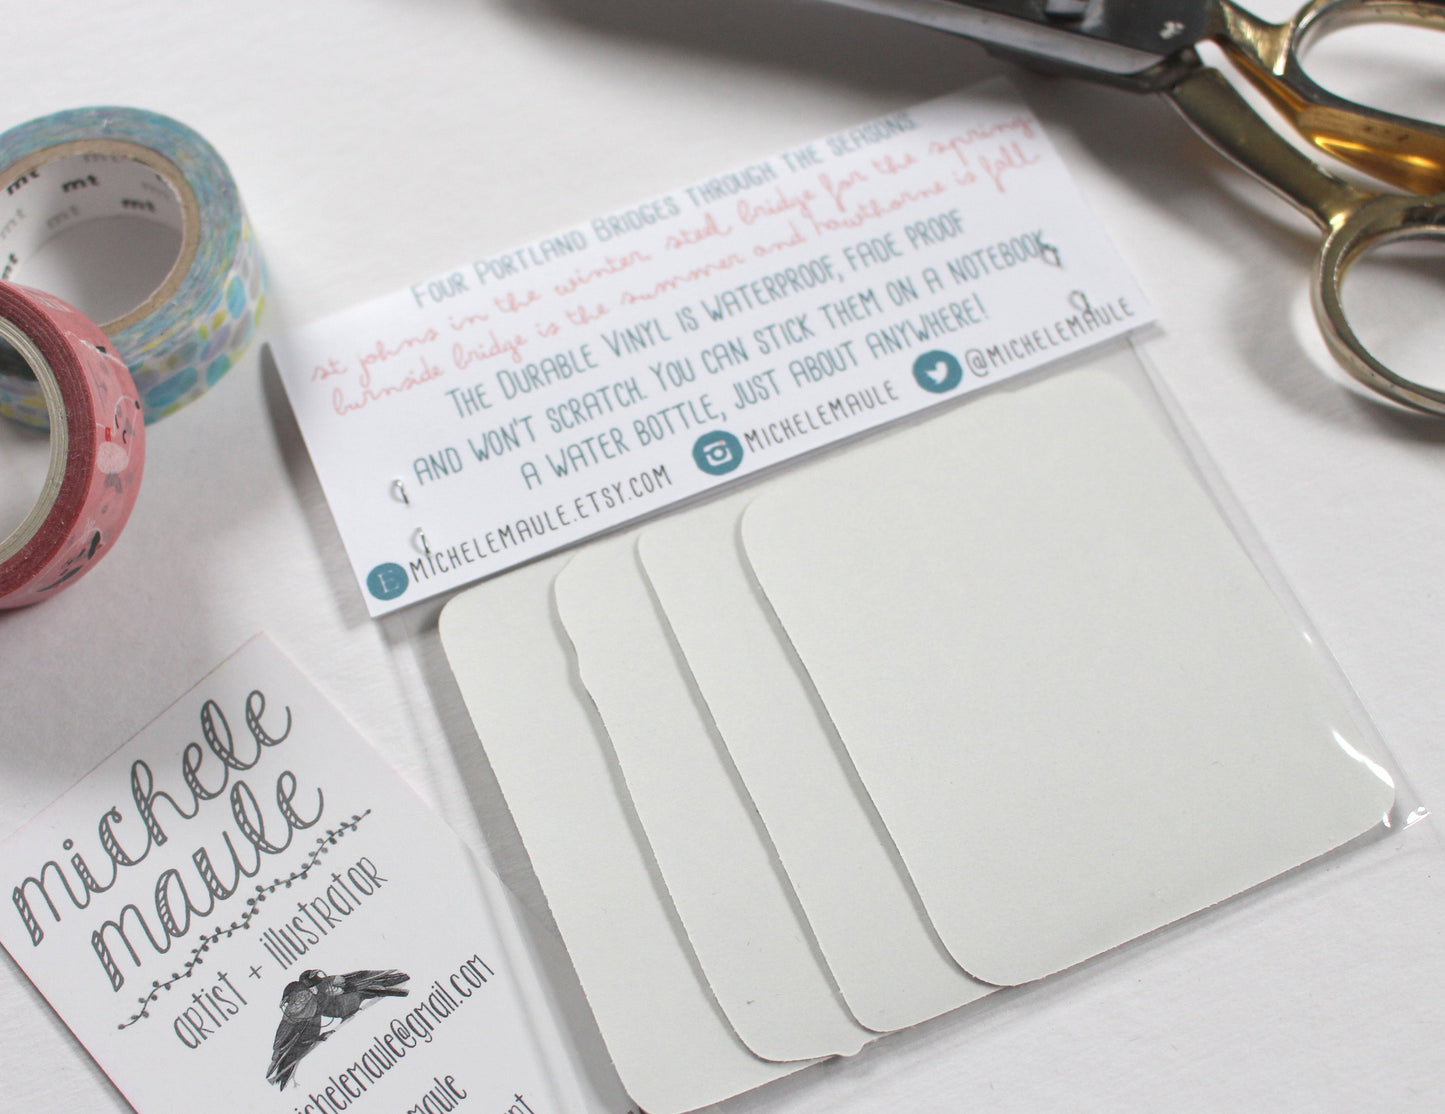 mt
mt
mt
mt
FOUR PORTLAND BRIDGES THROUGH THE SEASONS.
st johns in the winter steel bridge for the spring
burnside bridge is the summer and hawthorne is fall
THE DURABLE VINYL IS WATERPROOF, FADE PROOF
AND WON'T SCRATCH. YOU CAN STICK THEM ON A NOTEBOOK,
A WATER BOTTLE, JUST ABOUT ANYWHERE!
E MICHELEMAULE.ETSY.COM
MICHELEMAULE
@MICHELEMAULE
michele
maule
artist + illustrator
ichelemaule@gmail.com
maule